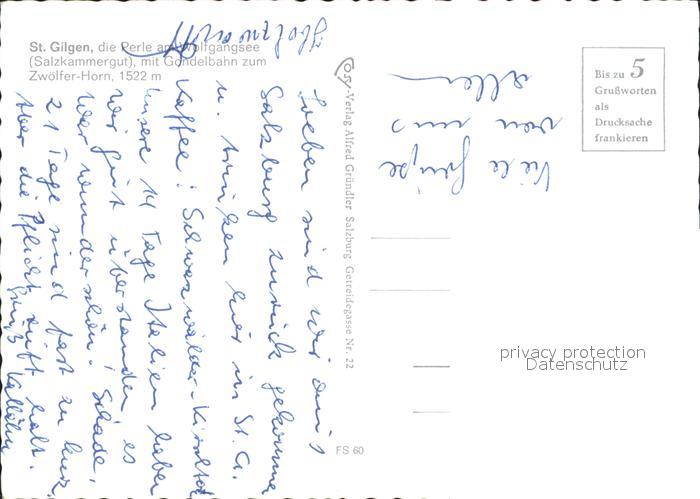 St. Gilgen, die Perle am Wolfgangsee
(Salzkammergut), mit Gondelbahn zum
Zwölfer-Horn, 1522 m
Cosy-Verlag Alfred Gründler Salzburg Getreidegasse Nr. 22
FS 60
Bis zu 5
Grußworten
als
Drucksache
frankieren
Soeben sind wir aus
Salzburg zurück gekommen
u. trinken hier in St. G.
Kaffee! Schwarzwälder-Kirschtorte
Unsere 14 Tage Italien haben
wir gut überstanden es
war wunderschön! Schade,
21 Tage sind fast zu kurz,
aber die Pflicht ruft halt.
Viele Grüße
von uns
allen
privacy protection
Datenschutz